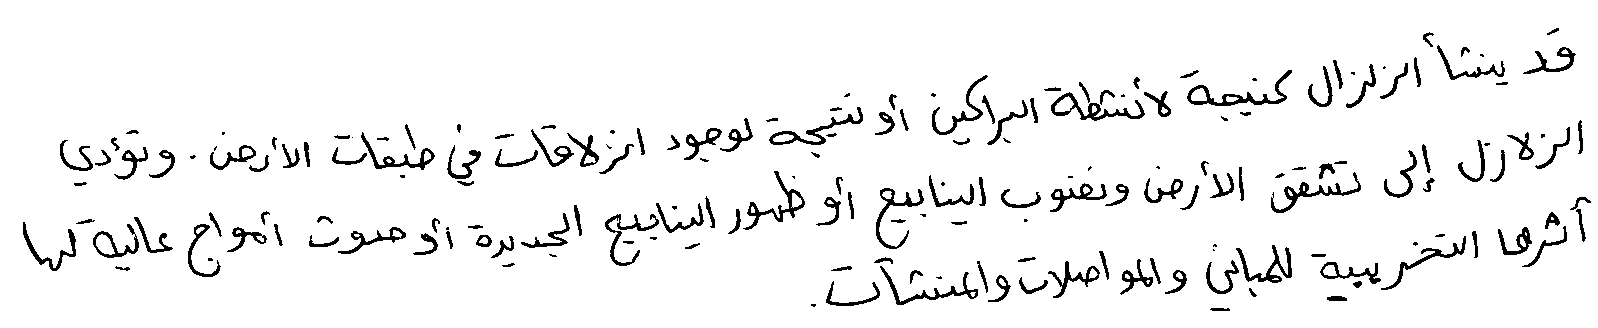 قد ينشأ الزلزال كنتيجة لأنشطة البراكين أو نتيجة لوجود انزلاقات في طبقات الأرض. وتؤدي
الزلازل إلى تشقق الأرض ونضوب الينابيع أو ظهور الينابيع الجديدة أو حدوث أمواج عالية لها
أثرها التخريبية للمباني والمواصلات والمنشآت.